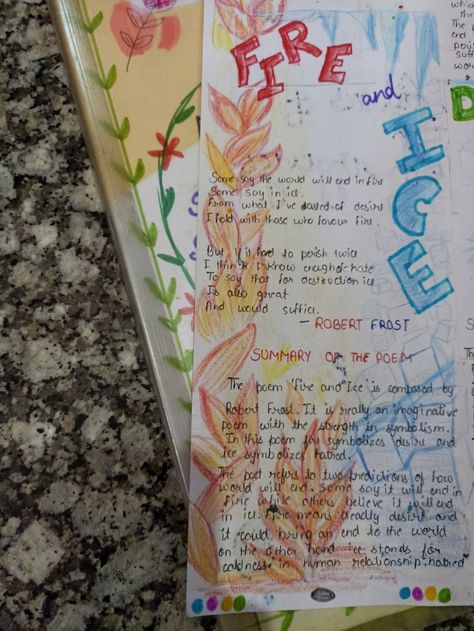 FIRE
and
ICE
Some say the world will end in fire
Some say in ice.
From what I've tasted of desire
I fold with those who favour fire.
But if it had to perish twice
I think I know enough of hate
To say that for destruction ice
Is also great
And would suffice.
- ROBERT FROST
SUMMARY OF THE POEM
The poem 'fire and Ice' is composed by
Robert Frost. It is really an imaginative
poem with the strength in symbolism.
In this poem fire symbolizes desire and
ice symbolizes hatred.
The poet refers to two predictions of how
world will end. Some say it will end in
fire while others believe it will end
in ice. Fire means deadly desire and
it could bring an end to the world
on the other hand ice stands for
coldness in human relationship, hatred